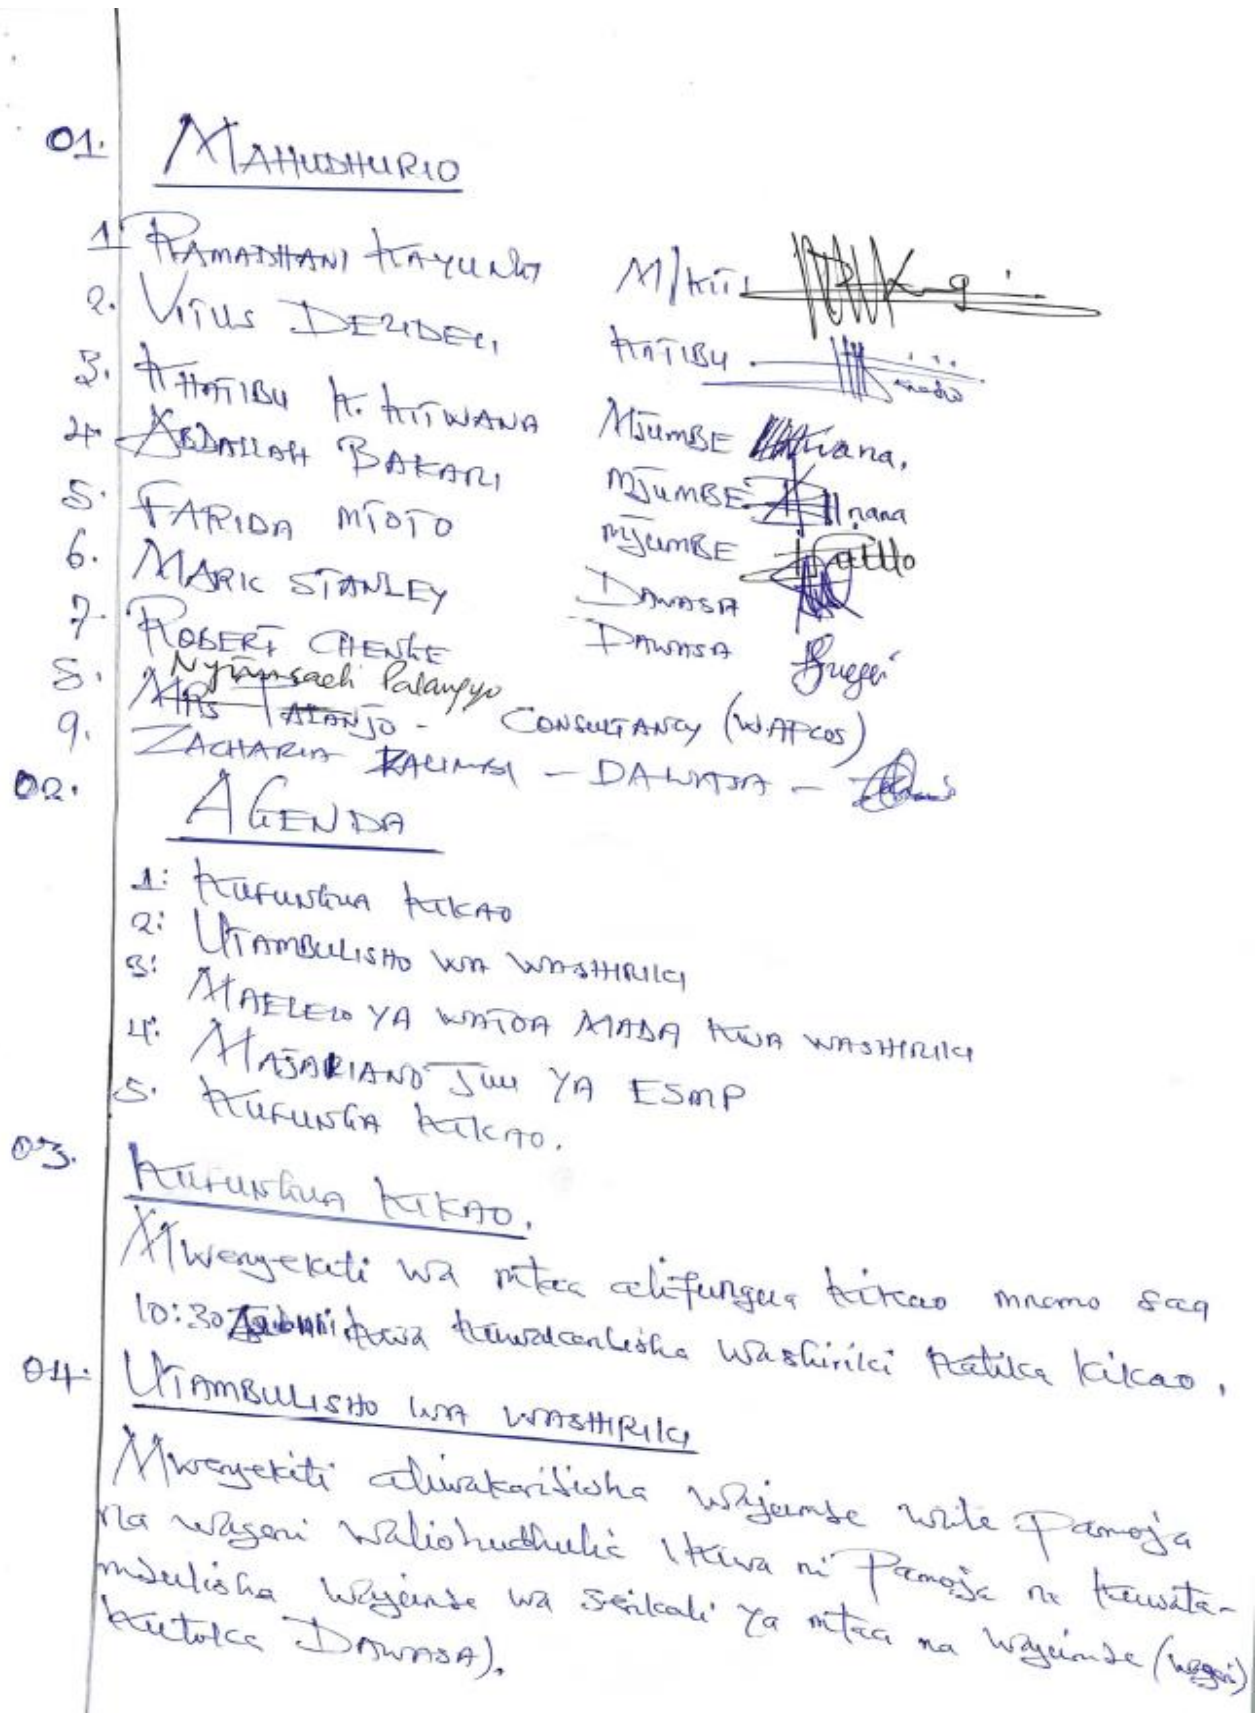 01. MAHUDHURIO
1 RAMADHANI KAYUNGI M/KITI
2. VITUS DEZIDELI KATIBU
3. KHATIBU K. KITWANA MJUMBE
4. ABDALLAH BAKARI MJUMBE
5. FARIDA MTOTO MJUMBE
6. MARK STANLEY DAWASA
7 ROBERT CHENGE DAWASA
Palangyo
8. MRS - CONSULTANCY (WAPCOS)
9. ZACHARIA - DAWASA -
02. AGENDA
1: KUFUNGUA KIKAO
2: UTAMBULISHO WA WASHIRIKI
3: MAELEZO YA WATOA MADA KWA WASHIRIKI
4: MAJARIANO JUU YA ESMP
5. KUFUNGA KIKAO.
03. KUFUNGUA KIKAO.
Mwenyekiti wa mtaa alifungua kikao mnamo saa
10:30 kwa kuwakaribisha washiriki katika kikao.
04. UTAMBULISHO WA WASHIRIKI
Mwenyekiti aliwakaribisha wajumbe wote pamoja
na wageni waliohudhulia ikiwa ni pamoja na kuwata-
mbulisha wajumbe wa serikali ya mtaa na wajumbe (wageni)
kutoka DAWASA).